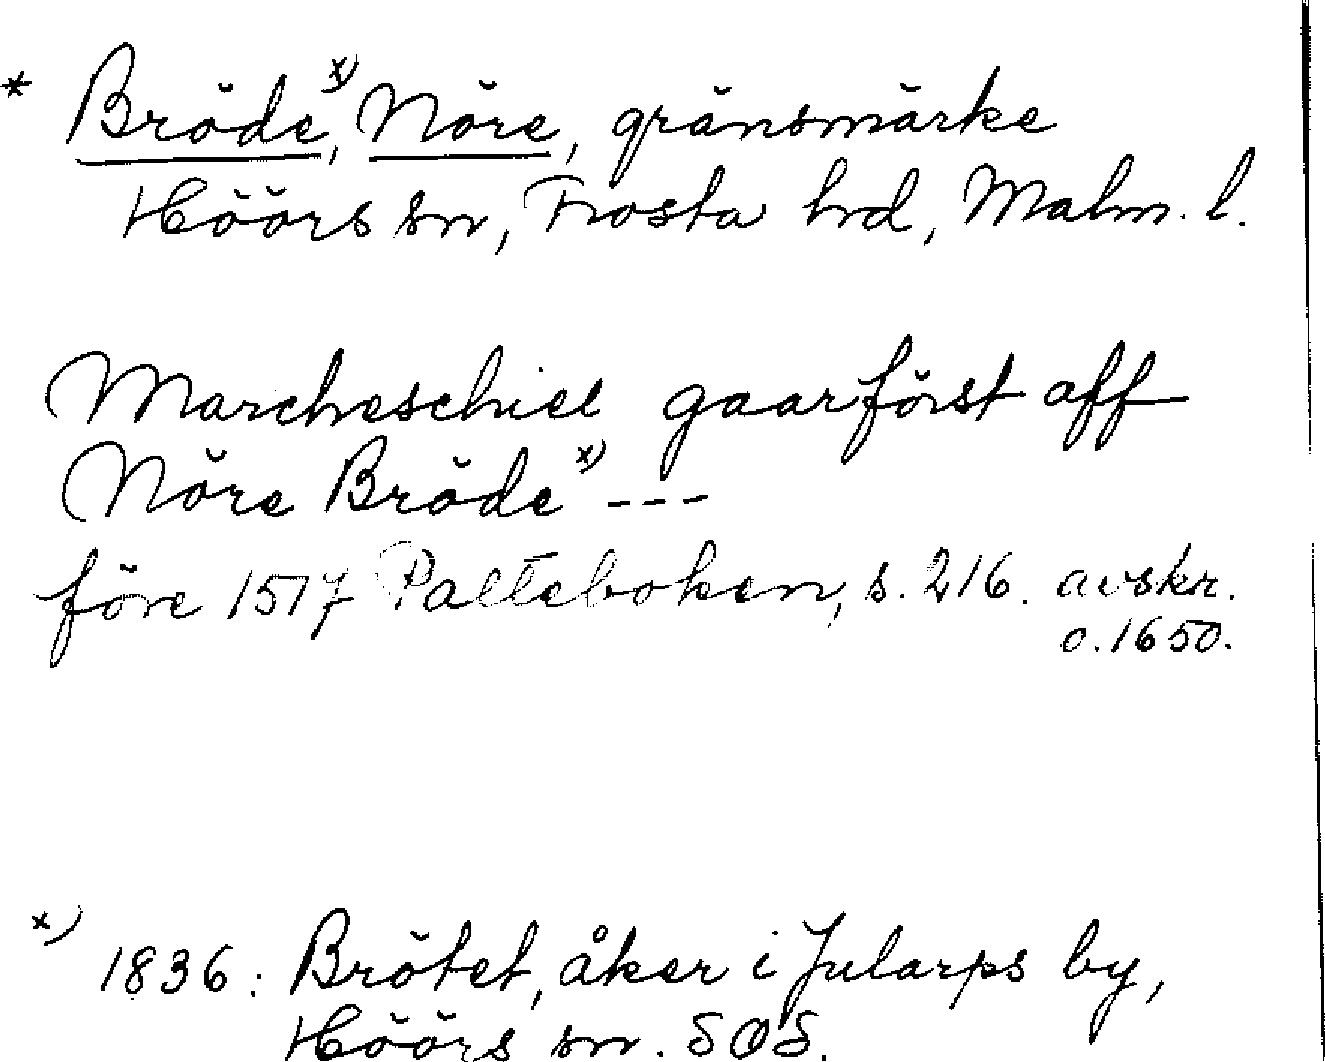 * Bröde,x) Nöre, gränsmärke
Höörs sn, Frosta hd, Malm. l.
Marcheschiel gaar först aff
Nöre Bröde x) ---
före 1517 Palteboken, s. 216. avskr.
o. 1650.
x) 1836: Brötet, åker i Jularps by,
Höörs sn. SOS.